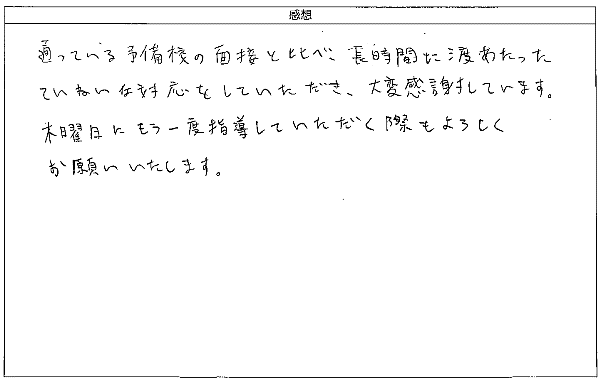 感想
通っている予備校の面接と比べ、長時間に渡あたった
ていねいな対応をしていただき、大変感謝しています。
木曜日にもう一度指導していただく際もよろしく
お願いいたします。